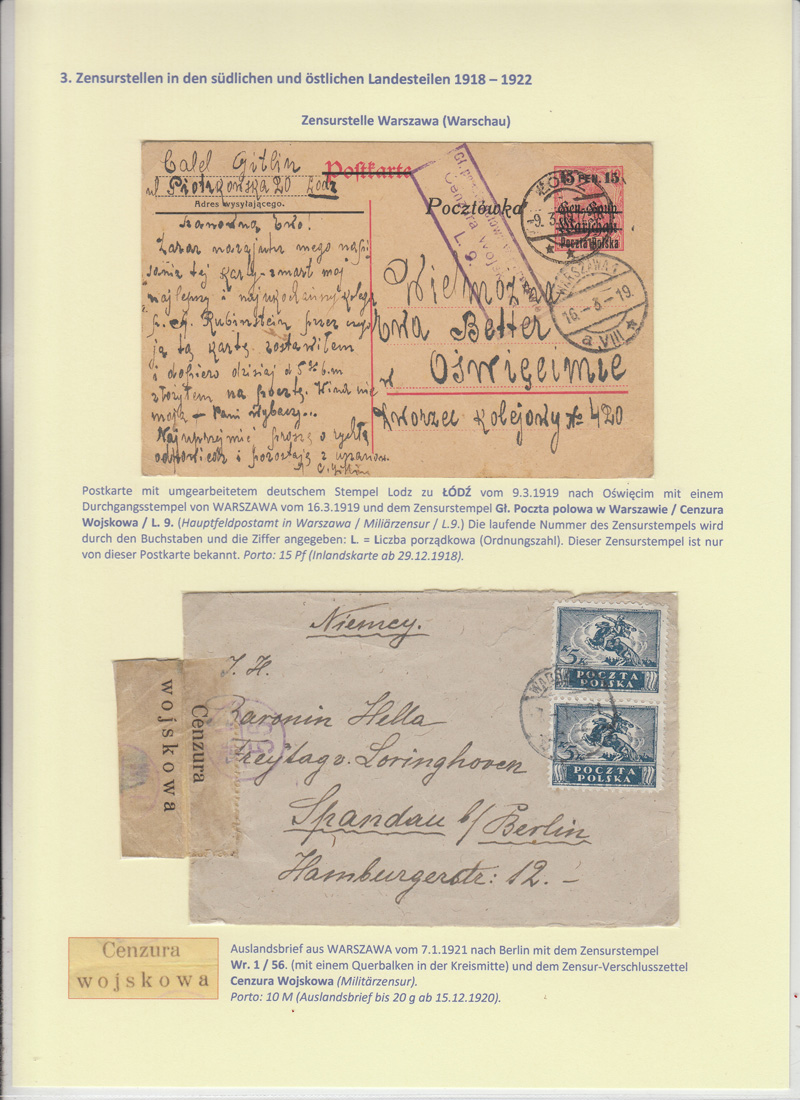 3. Zensurstellen in den südlichen und östlichen Landesteilen 1918 – 1922
Zensurstelle Warszawa (Warschau)
Calel Gitlin
ul Piotrkowska 20 Łodz
Adres wysyłającego.
Postkarte
Pocztówka
15 PEN. 15
Gen.-Gouv.
Warschau
Poczta Polska
ŁÓDŹ
9. 3. 19
Cenzura Wojsk
L. 9.
WARSZAWA 1
16-3-19.
a VIII
Szanowna Ewo!
Zaraz nazajutrz mego napi-
sania tej karty zmarł mój
najlepszy i najukochańszy kolega
Rubinstein przez
ją tą kartę zostawiłem
i dopiero dzisiaj d 5 b.m
złożyłem na pocztę. Wina nie
moja – Pani wybaczy...
Najuprzejmiej proszę o rychłą
odpowiedź i pozostaję z
C. Gitlin
Wielmożna
Ewa Better
w Oświęcimie
Dworzec Kolejowy № 420
Postkarte mit umgearbeitetem deutschem Stempel Lodz zu ŁÓDŹ vom 9.3.1919 nach Oświęcim mit einem
Durchgangsstempel von WARSZAWA vom 16.3.1919 und dem Zensurstempel Gł. Poczta polowa w Warszawie / Cenzura
Wojskowa / L. 9. (Hauptfeldpostamt in Warszawa / Miliärzensur / L.9.) Die laufende Nummer des Zensurstempels wird
durch den Buchstaben und die Ziffer angegeben: L. = Liczba porządkowa (Ordnungszahl). Dieser Zensurstempel ist nur
von dieser Postkarte bekannt. Porto: 15 Pf (Inlandskarte ab 29.12.1918).
Niemcy.
5
POCZTA
POLSKA
5
POCZTA
POLSKA
Cenzura
wojskowa
I. H.
Baronin Hella
Freytag v. Loringhoven
Spandau b/Berlin
Hamburgerstr: 12.–
Cenzura
wojskowa
Auslandsbrief aus WARSZAWA vom 7.1.1921 nach Berlin mit dem Zensurstempel
Wr. 1 / 56. (mit einem Querbalken in der Kreismitte) und dem Zensur-Verschlusszettel
Cenzura Wojskowa (Militärzensur).
Porto: 10 M (Auslandsbrief bis 20 g ab 15.12.1920).